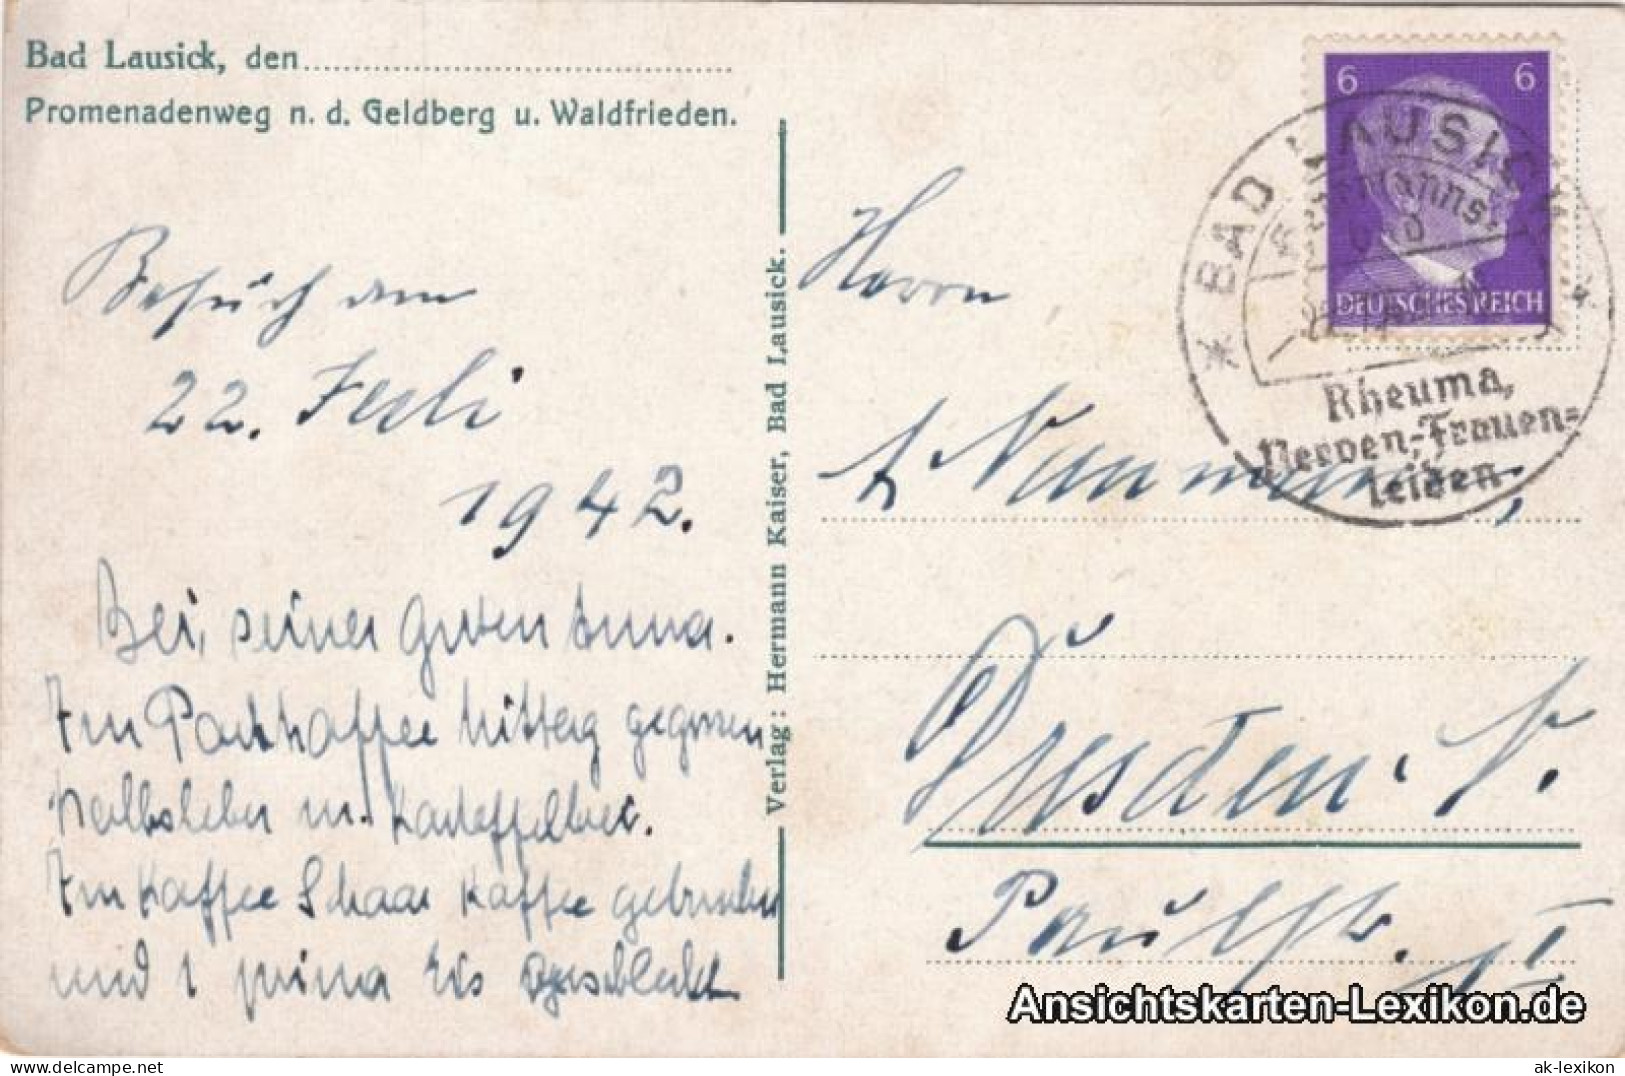 Bad Lausick, den
Promenadenweg n. d. Geldberg u. Waldfrieden.
Besuch am
22. Juli
1942.
Bei seiner guten Anna.
Im Parkkaffee Mittag gegessen
Kalbsleber m. Kartoffelbrei.
Im Kaffee Schaar Kaffee getrunken
und 1 prima Eis
Verlag: Hermann Kaiser, Bad Lausick.
Herrn
A. Naumann,
Dresden.
6 6
DEUTSCHES REICH
* BAD LAUSICK *
Rheuma,
Nerven-, Frauen-
leiden
Ansichtskarten-Lexikon.de
the world's greatest marketplace for collectors
ak-lexikon